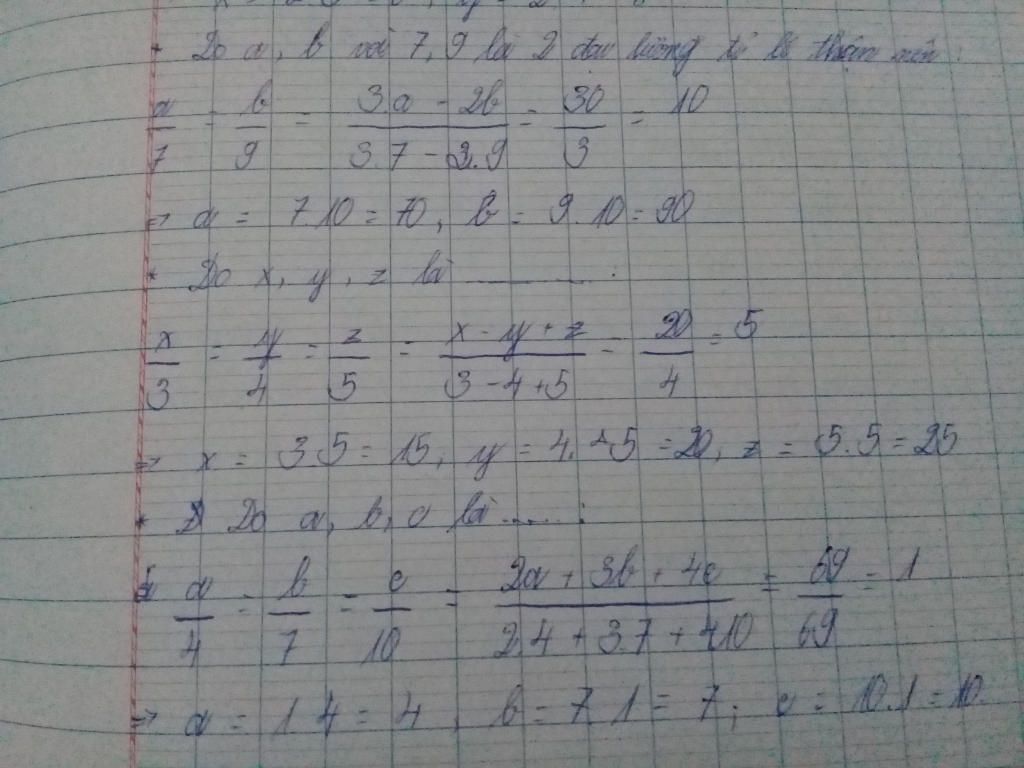 * Do a, b với 7, 9 là 2 đại lượng tỉ lệ thuận nên :
a/7 = b/9 = (3.a - 2b)/(3.7 - 2.9) = 30/3 = 10
=> a = 7.10 = 70, b = 9.10 = 90
* Do x, y, z là ............ :
x/3 = y/4 = z/5 = (x - y + z)/(3 - 4 + 5) = 20/4 = 5
=> x = 3.5 = 15, y = 4.5 = 20, z = 5.5 = 25
* Do a, b, c là ........ :
a/4 = b/7 = c/10 = (2a + 3b + 4c)/(2.4 + 3.7 + 4.10) = 69/69 = 1
=> a = 1.4 = 4, b = 7.1 = 7; c = 10.1 = 10.